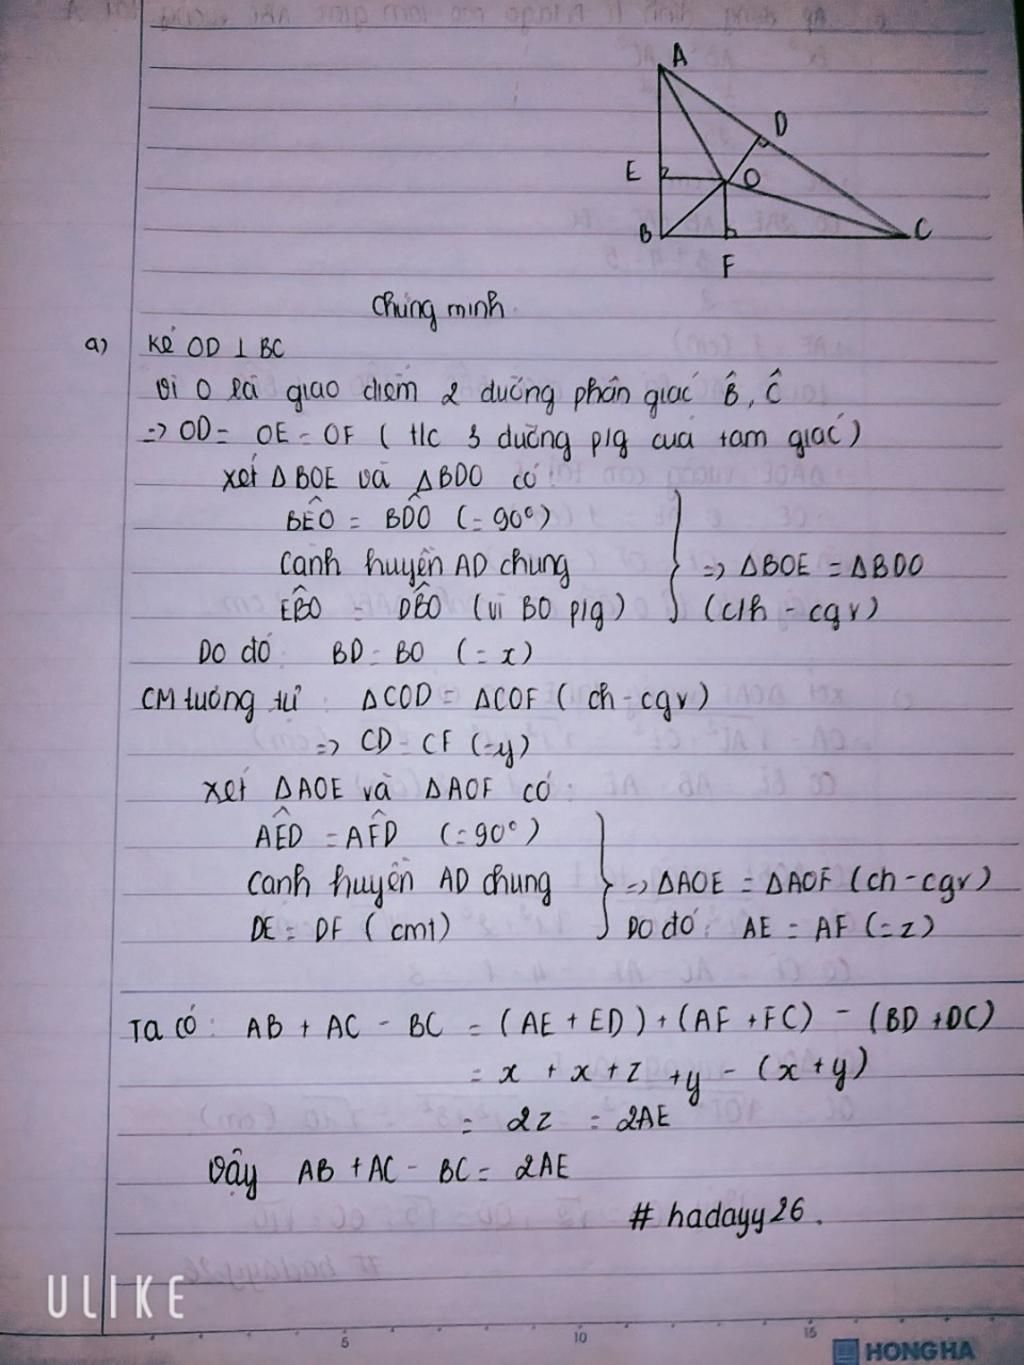 A
D
E
O
B
C
F
Chứng minh
a) Kẻ OD ⊥ BC
Vì O là giao điểm 2 đường phân giác B̂, Ĉ
=> OD = OE = OF ( t/c 3 đường p/g của tam giác )
Xét ΔBOE và ΔBDO có
BÊO = BD̂O (= 90°)
Cạnh huyền AD chung
EB̂O = DB̂O (vì BO p/g)
=> ΔBOE = ΔBDO
(c/h - cgv)
Do đó: BD = BO (= x)
CM tương tự : ΔCOD = ΔCOF ( ch - cgv)
=> CD = CF (=y)
Xét ΔAOE và ΔAOF có:
AÊD = AF̂D (= 90°)
Cạnh huyền AD chung
DE = DF ( cmt)
=> ΔAOE = ΔAOF (ch - cgv)
Do đó: AE = AF (= z)
Ta có: AB + AC - BC = (AE + ED) + (AF + FC) - (BD + DC)
= x + x + z + y - (x + y)
= 2z = 2AE
Vậy AB + AC - BC = 2AE
# hadayy26.
ULIKE
5 10 15
HONG HA